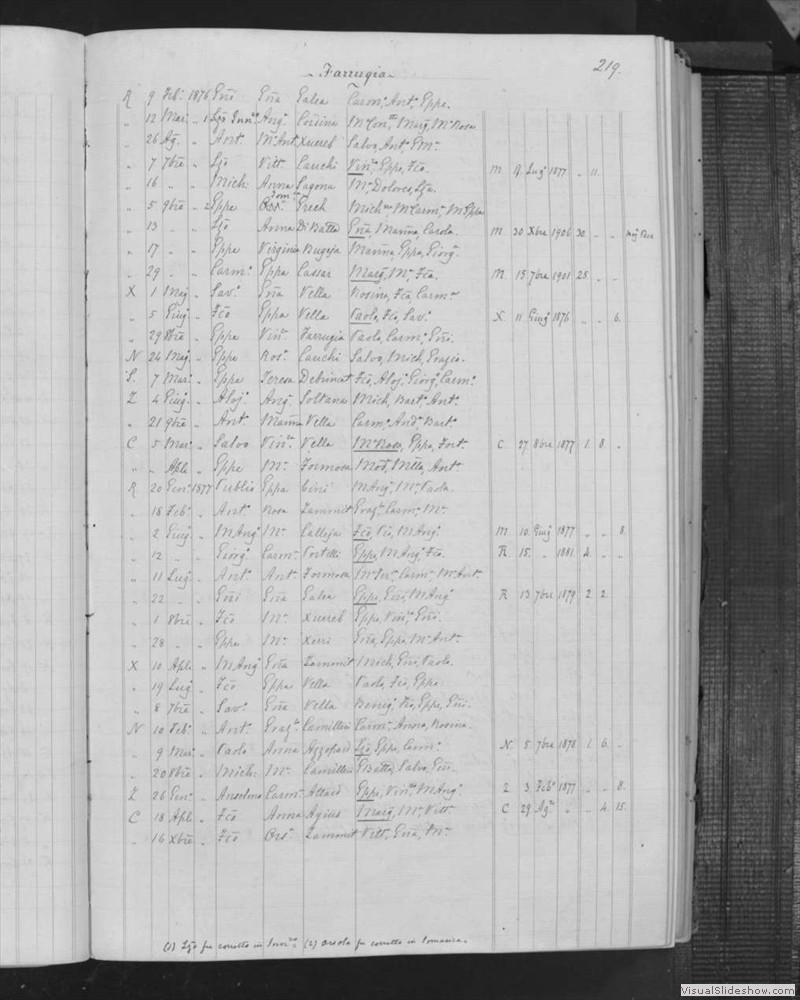 219.
Farrugia
R 9 Feb: 1876 Eñi Eña Galea Carm: Ant: Eppe.
„ 12 Mar: „ 1 Ang: Cossina M: Con:, Marg:, M: Rosa
„ 26 Ag: „ Ant: M: Ant: Xuereb Salvo, Ant: Em:
„ 7 7bre „ Ljo Vitt: Cauchi Vin:, Eppe, Fco. M 9. Lug: 1877 „ 11.
„ 16 „ „ Mich: Anna Sagona M:, Dolores, Lja.
„ 5 9bre „ 2 Eppe Grech Mich:, M: Carm:, M: Eppa
„ 13 „ „ Ljo Anna Di Batta Eña, Maña, Carola. M 30 Xbre 1906 30 „ „
„ 17 „ „ Eppe Virginia Bugeja Maña, Eppa, Giorg:
„ 29 „ „ Carm: Eppa Cassar Marg:, M:, Fca. M 15 7bre 1901 25 „ „
X 1 Mag: „ Sav: Eña Vella Rosina, Fca, Carm:
„ 5 Giug: „ Fco Eppa Vella Paolo, Fco, Sav: X 11 Giug: 1876 „ „ 6.
„ 29 8bre „ Eppe Vin: Farrugia Paolo, Carm:, Eñi.
N 24 Mag: „ Eppe Ros: Cauchi Salvo, Mich:, Grazio.
S. 7 Mar: „ Eppe Teresa Debrincat Fco, Aloj:, Giorg:, Carm:
Z 4 Giug: „ Aloj: Ang: Soltana Mich:, Bart:, Ant:
„ 21 9bre „ Ant: Maña Vella Carm:, And:, Bart:
C 5 Mar: „ Salvo Vin: Vella M: Rosa, Eppa, Fort: C 27 8bre 1877 1. 8. „
„ „ Aple „ Eppe M: Formosa Ant:
R 20 Gen: 1877 Publio Eppa Cini M: Ang:, M:, Paola.
„ 18 Feb: „ Ant: Rosa Zammit Graz:, Carm:, M:
„ 2 Giug: „ M: Ang: M: Calleja Fco, M: Ang: M 10. Giug: 1877 „ „ 8.
„ 12 „ „ Giorg: Carm: Portelli Eppe, M: Ang:, Fco. R 15. „ 1881 4. „ „
„ 11 Lug: „ Ant: Ant: Formosa Carm:, M: Ant:
„ 22 „ „ Eñi Eña Galea Eppe, Eñi, M: Ang: R 13 7bre 1879 2 2.
„ 1 8bre „ Fco M: Xuereb Eppe, Vin:, Eñi.
„ 28 „ „ Eppe M: Xerri Eña, Eppa, M: Ant:
X 10 Aple „ M: Ang: Eña Zammit Mich:, Eñi, Paolo.
„ 19 Lug: „ Fco Eppa Vella Paolo, Fco, Eppe.
„ 8 7bre „ Sav: Eña Vella Benig:, Fco, Eppe, Eñi.
N 10 Feb: „ Ant: Graz: Camilleri Carm:, Anna, Rosina.
„ 9 Mar: „ Paolo Anna Azzopard Ljo, Eppe, Carm: N. 5 7bre 1878 1. 6. „
„ 20 8bre „ Mich: M: Camilleri G Batta, Salvo, Eñi.
Z 26 Gen: „ Anselmo Carm: Attard Eppe, Vin:, M: Ang: Z 3 Feb: 1877 „ „ 8.
C 18 Aple „ Fco Anna Agius Marg:, M:, Vitt: C 29 Ag: „ „ 4. 15.
„ 16 Xbre „ Fco Ors: Zammit Vitt:, Eña, M:
(1) Ljo fu corretto in Inn: (2) Orsola fu corretto in Tomasa.
VisualSlideshow.com